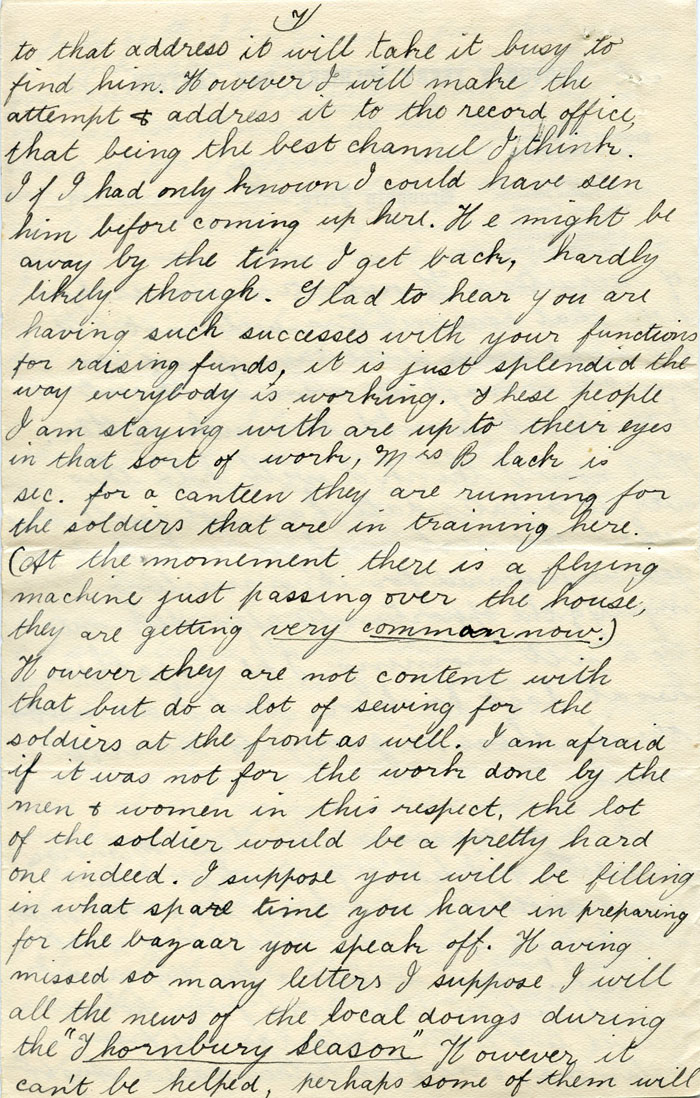 7
to that address it will take it busy to
find him. However I will make the
attempt & address it to the record office,
that being the best channel I think.
If I had only known I could have seen
him before coming up here. He might be
away by the time I get back, hardly
likely though. Glad to hear you are
having such successes with your functions
for raising funds, it is just splendid the
way everybody is working. These people
I am staying with are up to their eyes
in that sort of work, Mrs Black is
sec. for a canteen they are running for
the soldiers that are in training here.
(At the momement there is a flying
machine just passing over the house,
they are getting very common now.)
However they are not content with
that but do a lot of sewing for the
soldiers at the front as well. I am afraid
if it was not for the work done by the
men & women in this respect, the lot
of the soldier would be a pretty hard
one indeed. I suppose you will be filling
in what spare time you have in preparing
for the bazaar you speak off. Having
missed so many letters I suppose I will
all the news of the local doings during
the "Thornbury Season" However it
can't be helped, perhaps some of them will